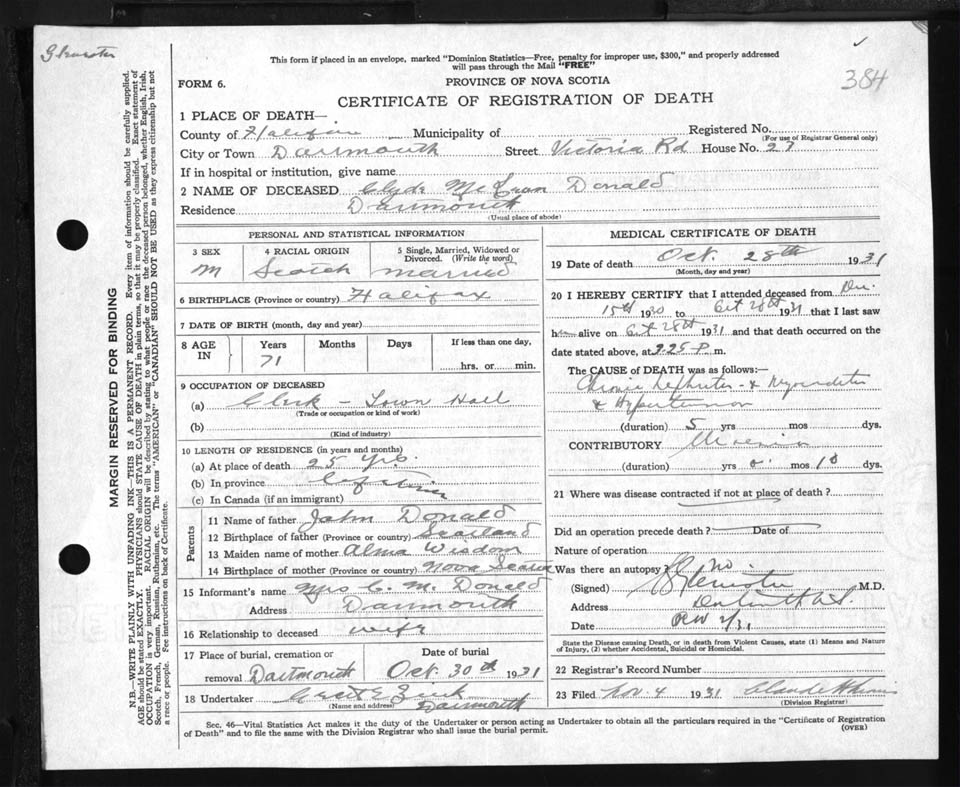 This form if placed in an envelope, marked "Dominion Statistics—Free, penalty for improper use, $300," and properly addressed
will pass through the Mail "FREE"
384
FORM 6.
PROVINCE OF NOVA SCOTIA
CERTIFICATE OF REGISTRATION OF DEATH
1 PLACE OF DEATH—
County of Halifax Municipality of Registered No.
(For use of Registrar General only)
City or Town Dartmouth Street Victoria Rd House No. 27
If in hospital or institution, give name
2 NAME OF DECEASED Clyde McLean Donald
Residence Dartmouth
(Usual place of abode)
PERSONAL AND STATISTICAL INFORMATION
3 SEX 4 RACIAL ORIGIN 5 Single, Married, Widowed or
Divorced. (Write the word)
M Scotch married
6 BIRTHPLACE (Province or country) Halifax
7 DATE OF BIRTH (month, day and year)
8 AGE IN Years Months Days If less than one day,
71 hrs. or min.
9 OCCUPATION OF DECEASED
(a) Clerk – Town Hall
(Trade or occupation or kind of work)
(b)
(Kind of industry)
10 LENGTH OF RESIDENCE (in years and months)
(a) At place of death 25 yrs.
(b) In province Lifetime
(c) In Canada (if an immigrant)
Parents
11 Name of father John Donald
12 Birthplace of father (Province or country) Scotland
13 Maiden name of mother Alma Wisdom
14 Birthplace of mother (Province or country) Nova Scotia
15 Informant's name Mrs C. M. Donald
Address Dartmouth
16 Relationship to deceased wife
17 Place of burial, cremation or Date of burial
removal Dartmouth Oct. 30th 1931
18 Undertaker
(Name and address) Dartmouth
MEDICAL CERTIFICATE OF DEATH
19 Date of death Oct. 28th 1931
(Month, day and year)
20 I HEREBY CERTIFY that I attended deceased from
15th 1930 to Oct 28th 1931 that I last saw
h alive on Oct 28th 1931 and that death occurred on
the date stated above, at 9.25 P m.
The CAUSE of DEATH was as follows:
Chronic Nephritis & Myocarditis
& Hypertension
(duration) 5 yrs mos dys.
CONTRIBUTORY Uremia
(duration) yrs 0 mos 10 dys.
21 Where was disease contracted if not at place of death?
Did an operation precede death? Date of
Nature of operation
Was there an autopsy? no
(Signed) M.D.
Address
Date
State the Disease causing Death, or in death from Violent Causes, state (1) Means and Nature
of Injury, (2) whether Accidental, Suicidal or Homicidal.
22 Registrar's Record Number
23 Filed Nov. 4 1931
(Division Registrar)
Sec. 46—Vital Statistics Act makes it the duty of the Undertaker or person acting as Undertaker to obtain all the particulars required in the "Certificate of Registration
of Death" and to file the same with the Division Registrar who shall issue the burial permit.
(OVER)
MARGIN RESERVED FOR BINDING
N.B.—WRITE PLAINLY WITH UNFADING INK—THIS IS A PERMANENT RECORD. Every item of information should be carefully supplied.
AGE should be stated EXACTLY. PHYSICIANS should STATE CAUSE OF DEATH in plain terms, so that it may be properly classified. Exact statement of
OCCUPATION is very important. RACIAL ORIGIN will be described by stating to what people or race the deceased person belonged, whether English, Irish,
Scotch, French, German, Russian, Ruthenian, etc. The terms "AMERICAN" or "CANADIAN" SHOULD NOT BE USED as they express citizenship but not
a race or people. Fee instructions on back of Certificate.